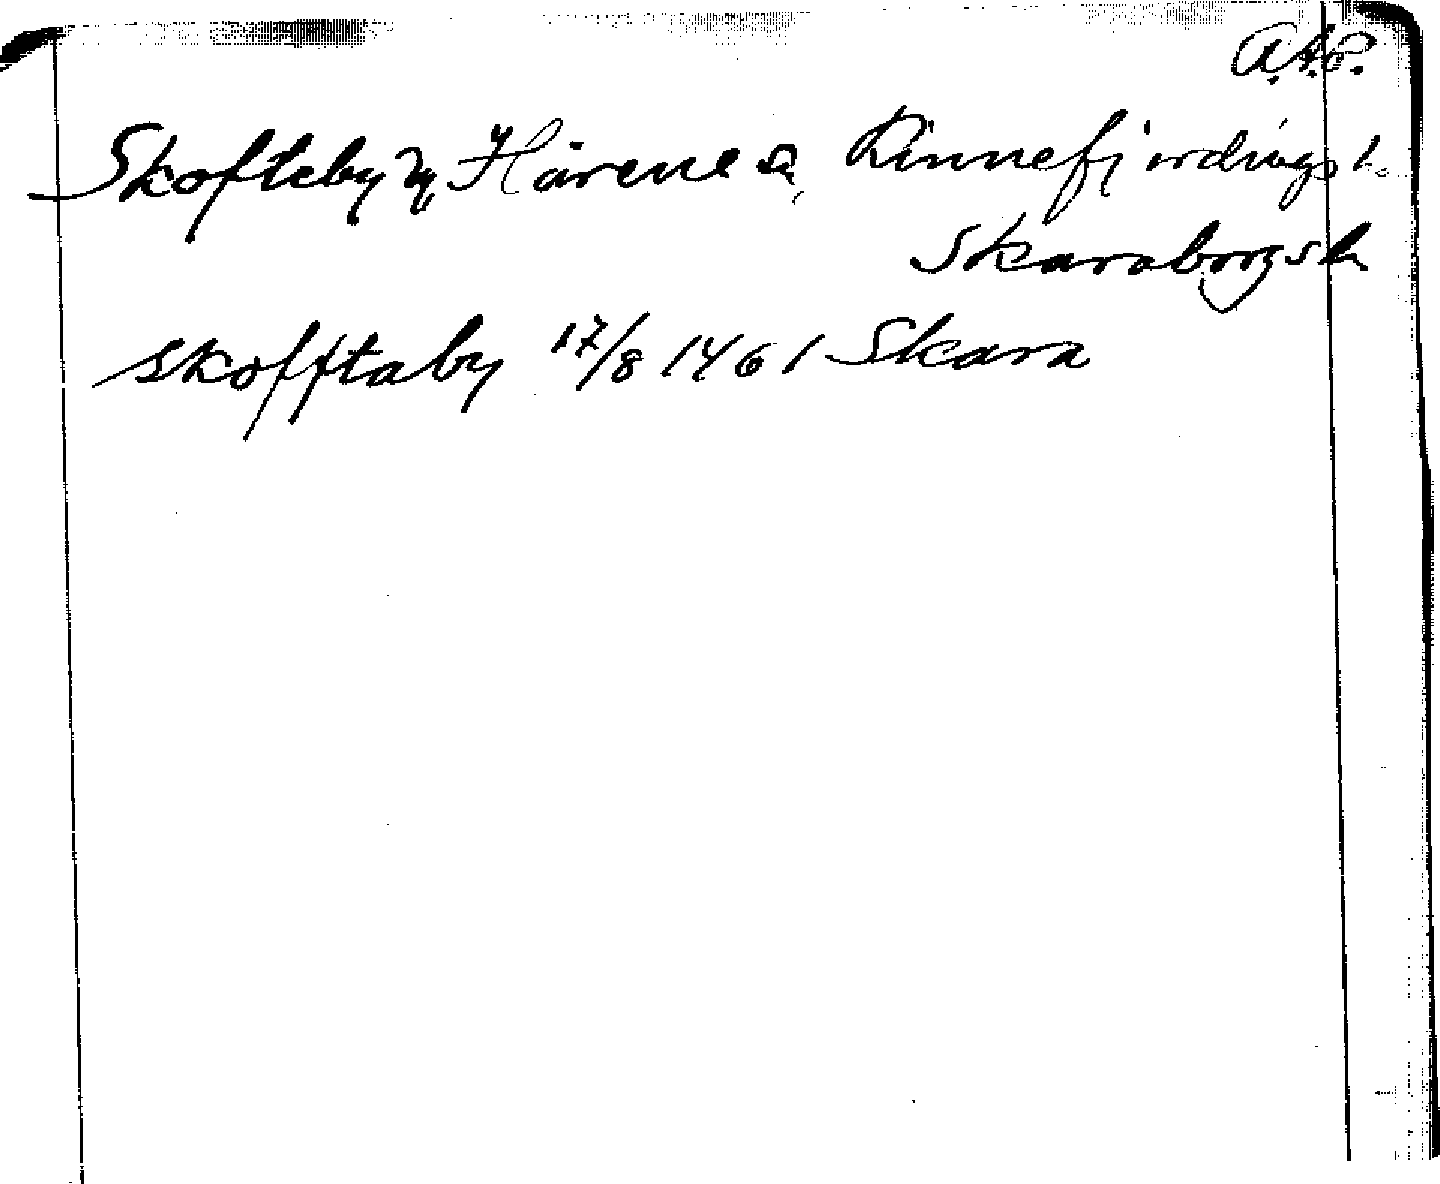 A.N.P.
Skofteby Hårene s. Kinnefjerdings h.
Skaraborgs l.
skofftaby 17/8 1461 Skara